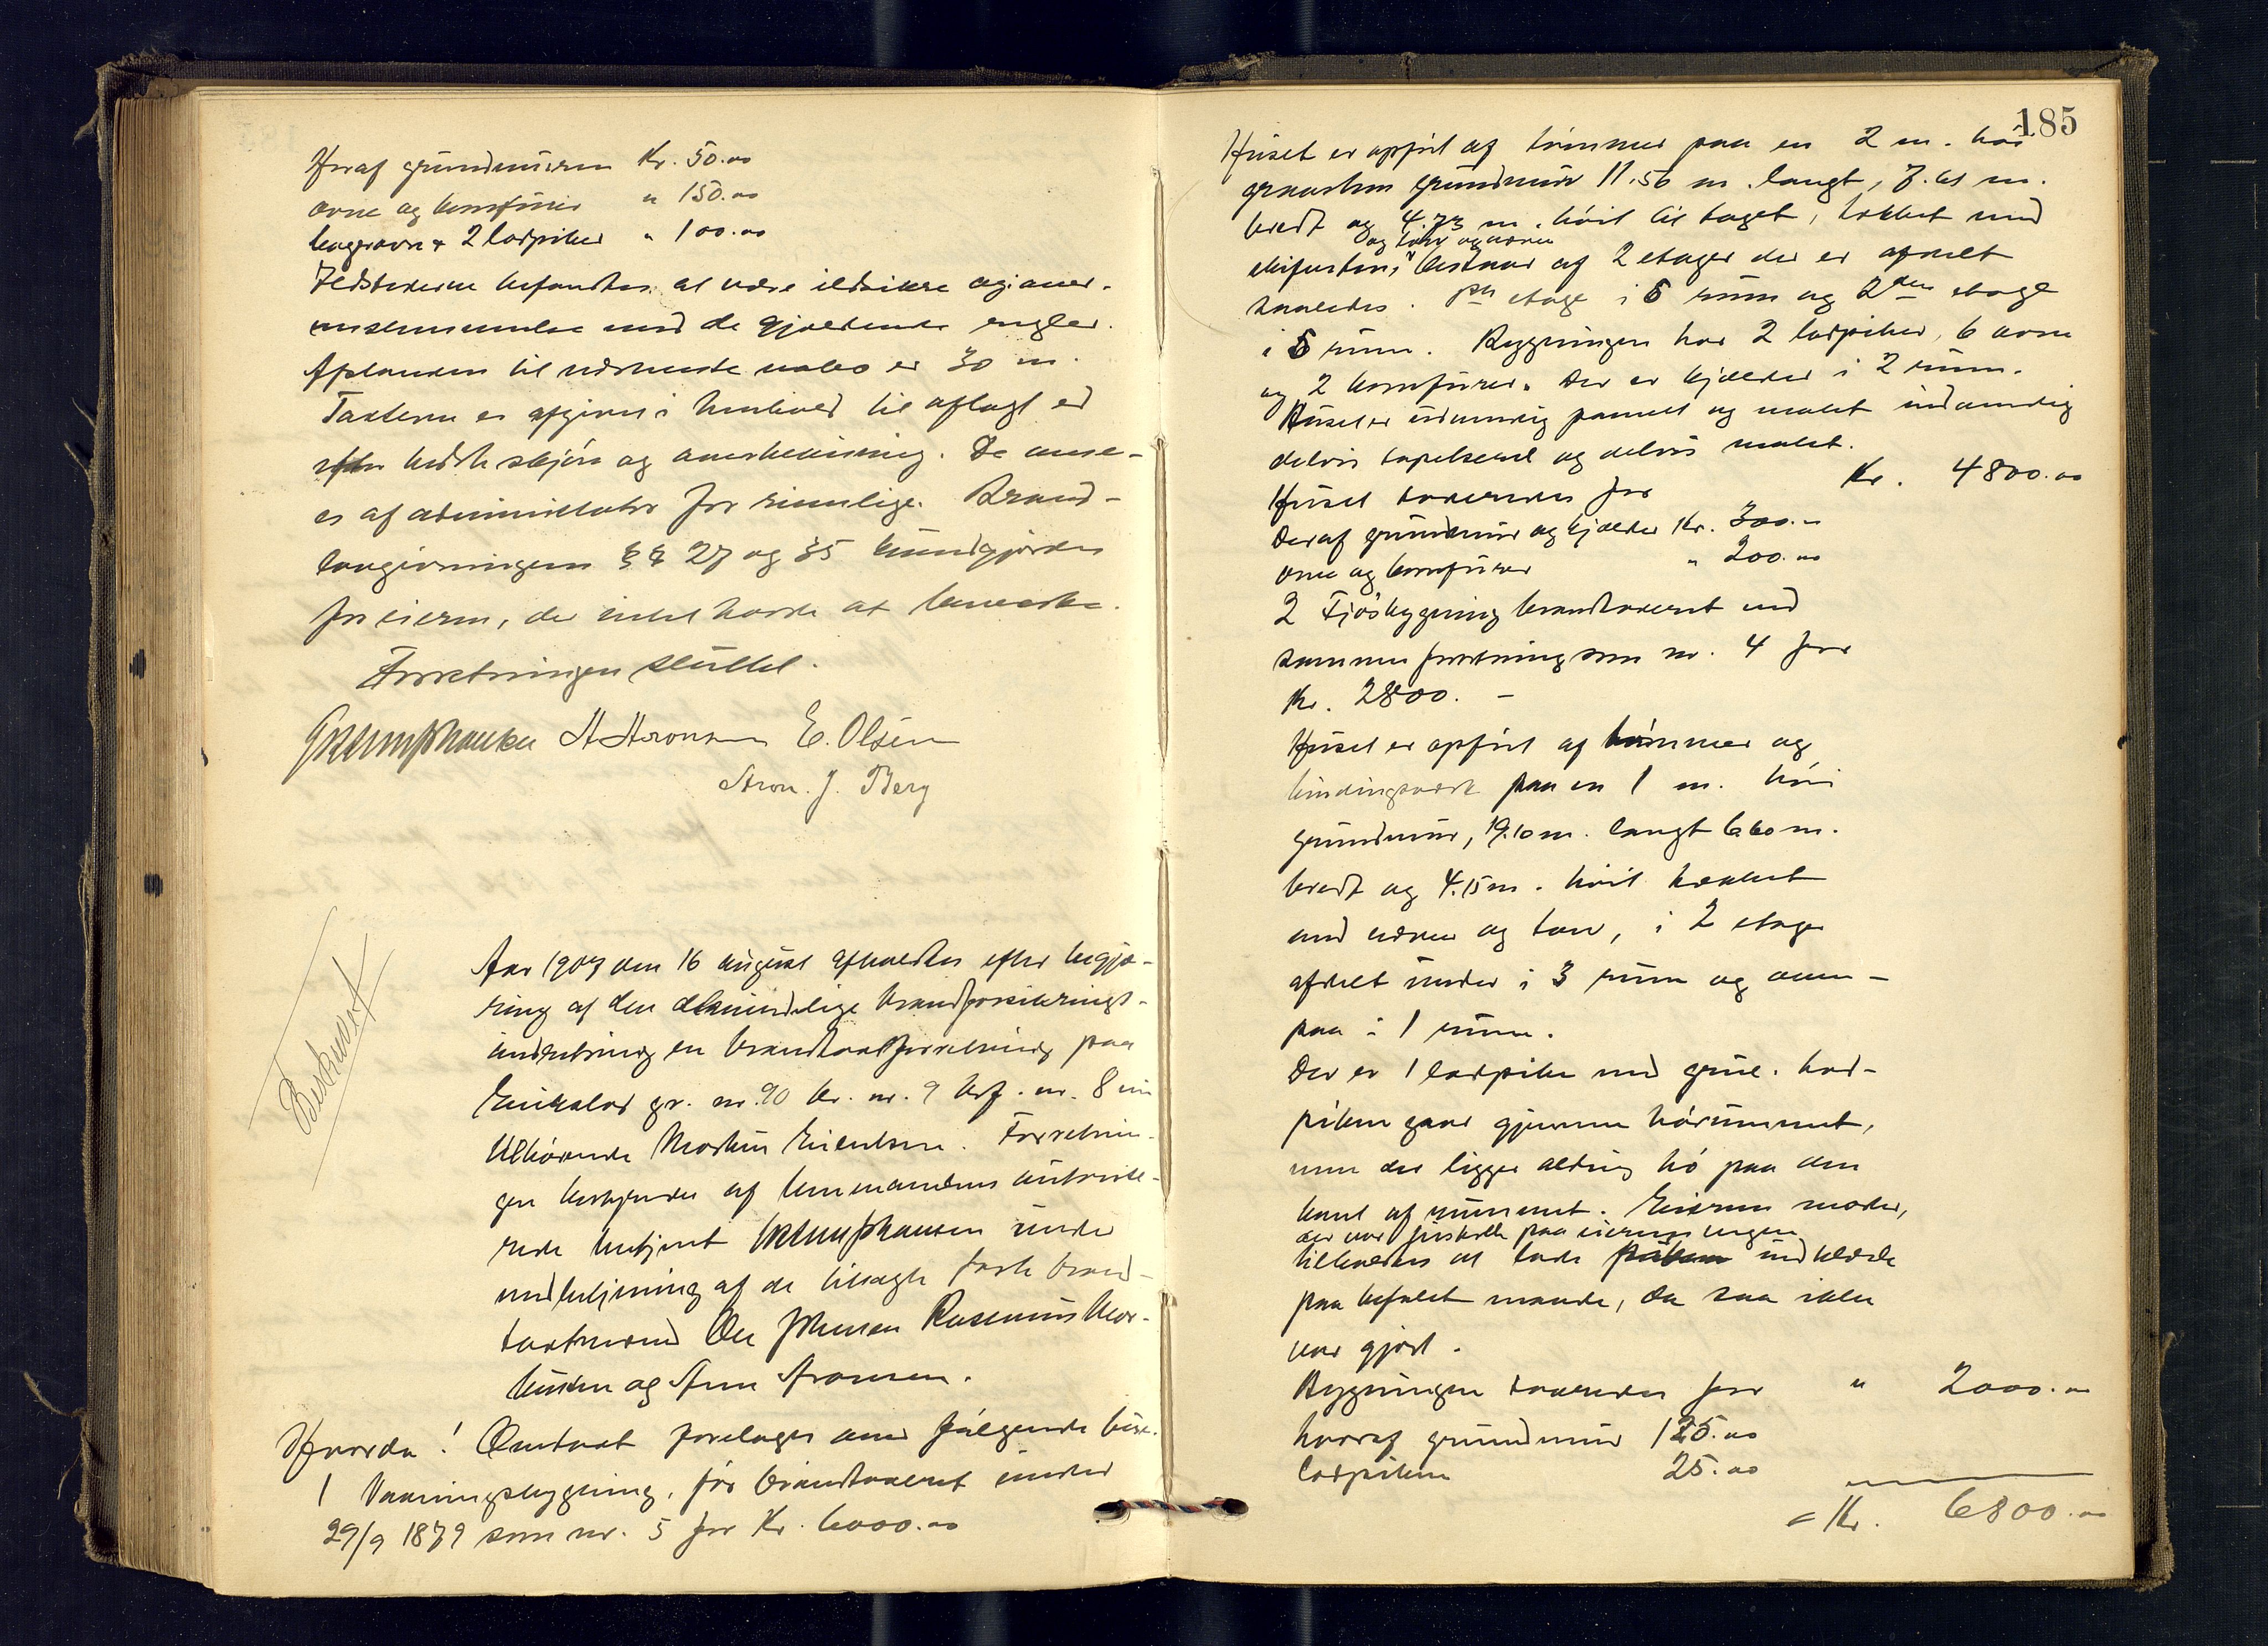 Hvoraf grundmuren Kr. 50.00
ovne og komfurer " 150.00
bagerovn & 2 ladpiber " 100.00
Ildstederne befandtes at være ildsikre og i over-
ensstemmelse med de gjældende regler.
Afstanden til nærmeste nabo er 30 m.
Taxterne er afgivne i henhold til aflagt ed
efter bedste skjøn og overbevisning. De anse-
es af administrator for rimelige. Brand-
lovgivningens §§ 27 og 35 kundgjordes
for eieren, der intet havde at bemærke.
Forretningen sluttet.
A Aronsen E. Olsen
Aron. J. Berg
Beskrevet
Aar 1907 den 16 august afholdtes efter begjæ-
ring af den almindelige brandforsikrings-
indretning en brandtaxtforretning paa
gr. nr. 90 br. nr. 9 brf. nr. 8
tilhørende Martin . Forretnin-
gen bestyredes af lensmandens autorise-
rede betjent under
medbetjening af de tilsagte faste brand-
taxtmænd Ole Johnsen Rasmus
og Arne Aronsen.
Hvorda! Omtaxt foretages over følgende huse.
1 Vaaningsbygning, før brandtaxeret under
29/9 1879 som nr. 5 for Kr. 6000.00
185
Huset er opført af tømmer paa en 2 m. høi
graastens grundmur 11.56 m. langt, 7.61 m.
bredt og 4.73 m. høit til taget, tækket med
og torv og næver
skifersten, bestaar af 2 etager der er afdelt
saaledes. 1ste etage i 5 rum og 2den etage
i 5 rum. Bygningen har 2 ladpiber, 6 ovne
og 2 komfurer. Der er kjælder i 2 rum.
Huset er udvendig panelt og malet indvendig
delvis tapetseret og delvis malet.
Huset taxeredes for Kr. 4800.00
Deraf grundmur og kjælder Kr. 300.00
ovne og komfurer " 200.00
2 Fjøsbygning brandtaxeret ved
samme forretning som nr. 4 for
Kr. 2800. –
Huset er opført af tømmer og
bindingsværk paa en 1 m. høi
grundmur, 19.10 m. langt 6.60 m.
bredt og 4.15 m. høit tækket
med næver og torv, i 2 etager
afdelt under i 3 rum og oven-
paa i 1 rum.
Der er 1 ladpibe med grue. Lad-
piben gaar gjennem hørummet,
men der ligger aldrig hø paa den
kant af rummet. Eieren møder,
der var
tilholdtes at lade piben indklæde
paa befalet maade, da saa ikke
var gjort.
Bygningen taxeredes for " 2000.00
hvoraf grundmur 125.00
Ladpiben 25.00
= Kr. 6800.00